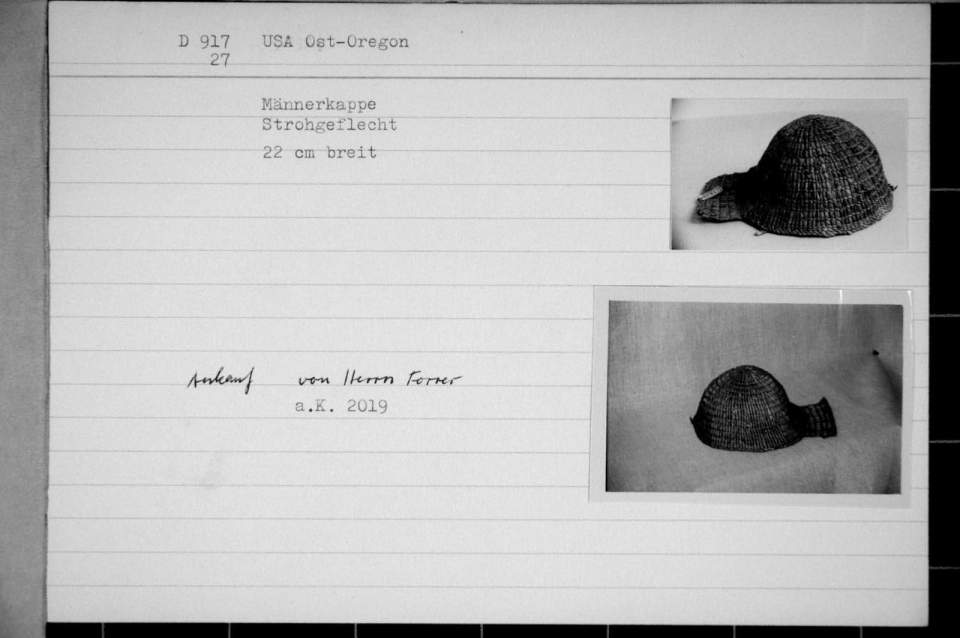 D 917 USA Ost-Oregon
27
Männerkappe
Strohgeflecht
22 cm breit
Ankauf von Herrn Forrer
a.K. 2019